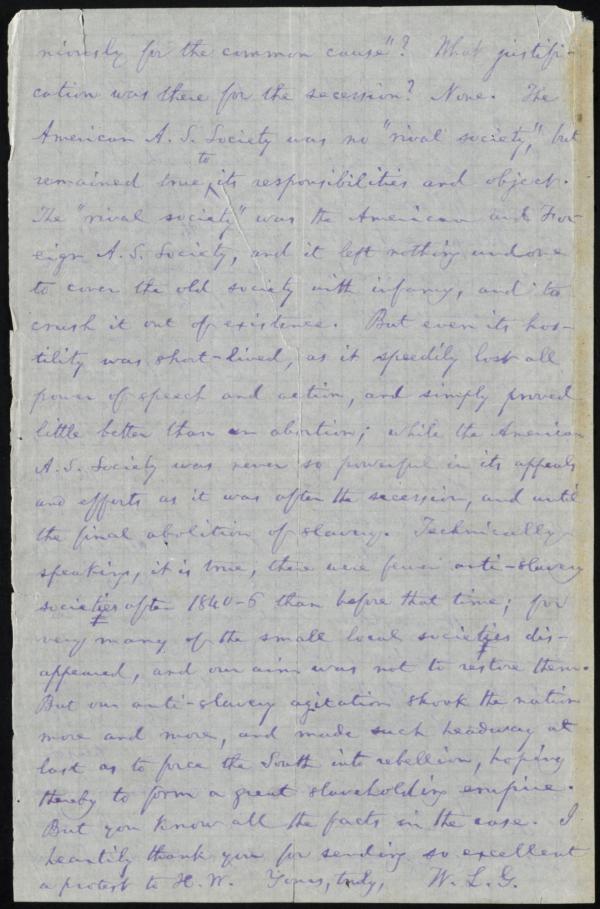 niously for the common cause"? What justifi-
cation was there for the secession? None. The
American A. S. Society was no "rival society," but
remained true to its responsibilities and object.
The "rival society" was the American and For-
eign A. S. Society, and it left nothing undone
to cover the old society with infamy, and to
crush it out of existence. But even its hos-
tility was short-lived, as it speedily lost all
power of speech and action, and simply proved
little better than an abortion; while the American
A. S. Society was never so powerful in its appeals
and efforts as it was after the secession, and until
the final abolition of slavery. Technically
speaking, it is true, there were fewer anti-slavery
societies after 1840-5 than before that time; for
very many of the small local societies dis-
appeared, and our aim was not to restore them.
But our anti-slavery agitation shook the nation
more and more, and made such headway at
last as to force the South into rebellion, hoping
thereby to form a great slaveholding empire.
But you know all the facts in the case. I
heartily thank you for sending so excellent
a protest to H. W. Yours, truly, W. L. G.